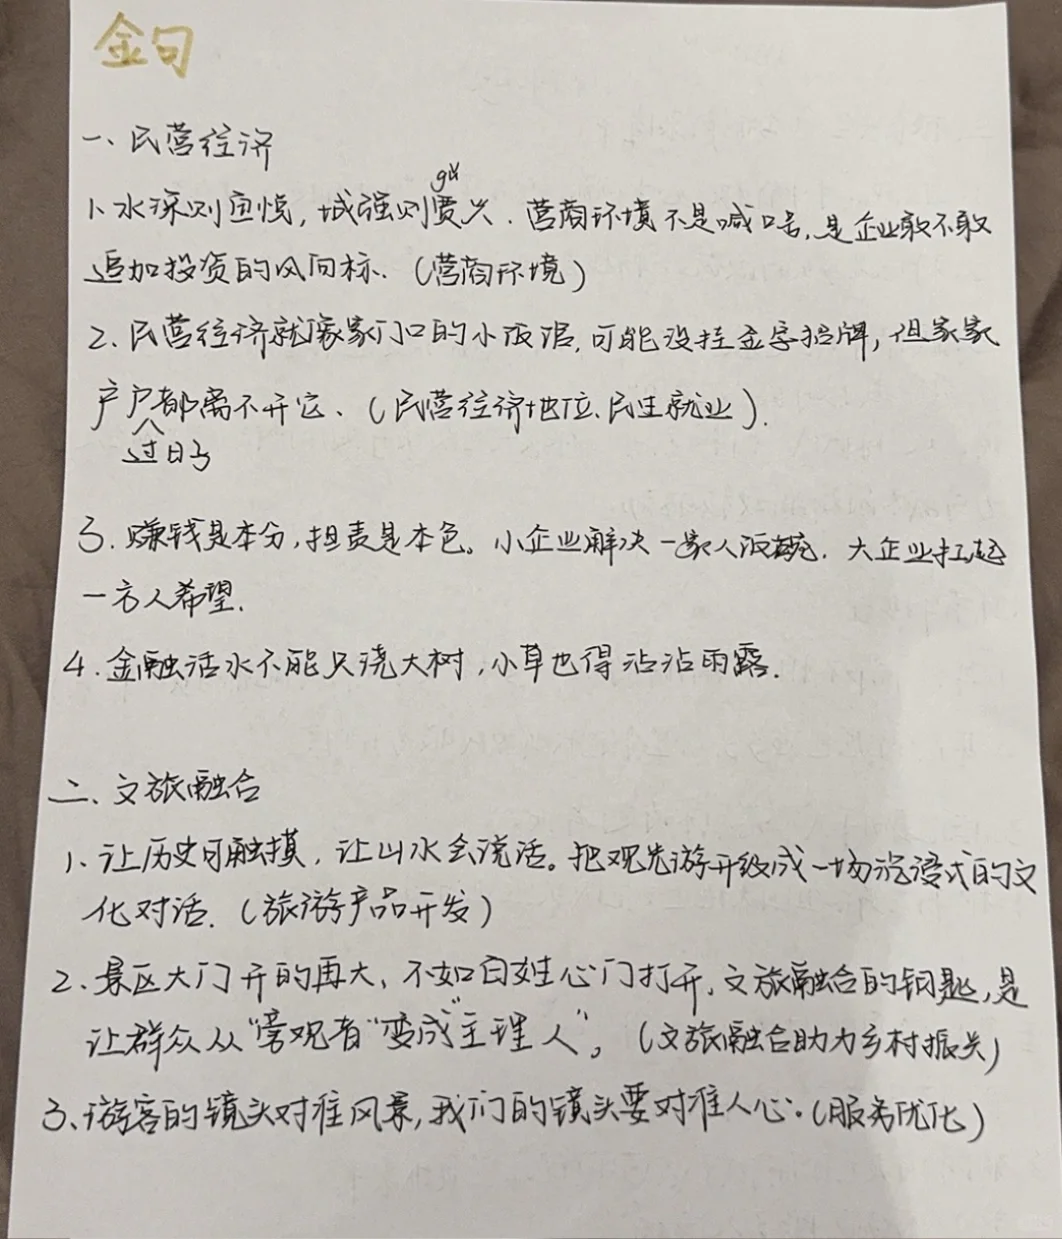 金句
一、民营经济
gǔ
1、水深则鱼悦，城强则贾兴．营商环境不是喊口号，是企业敢不敢
追加投资的风向标．（营商环境）
2、民营经济就像家门口的小饭馆，可能没挂金字招牌，但家家
户户都离不开它、（民营经济地位、民生就业）．
过日子
3．赚钱是本分，担责是本色。小企业解决一家人饭碗．大企业扛起
一方人希望．
4．金融活水不能只浇大树，小草也得沾沾雨露．
二、文旅融合
1、让历史可触摸，让山水会说话。把观光游升级成一场沉浸式的文
化对话．（旅游产品开发）
2、景区大门开的再大，不如百姓心门打开，文旅融合的钥匙，是
让群众从“旁观者”变成“主理人”。（文旅融合助力乡村振兴）
3、游客的镜头对准风景，我们的镜头要对准人心。（服务优化）